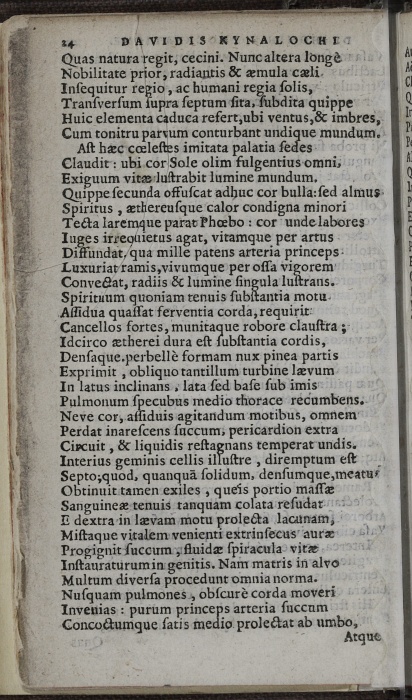 24 DAVIDIS KYNALOCHI
Quas natura regit, cecini. Nunc altera longè
Nobilitate prior, radiantis & æmula cæli
Insequitur regio, ac humani regia solis,
Transversum supra septum sita, subdita quippe
Huic elementa caduca refert, ubi ventus, & imbres,
Cum tonitru parvum conturbant undique mundum.
Ast hæc cœlestes imitata palatia sedes
Claudit: ubi cor Sole olim fulgentius omni,
Exiguum vitæ lustrabit lumine mundum.
Quippe secunda offuscat adhuc cor bulla: sed almus
Spiritus, æthereusque calor condigna minori
Tecta laremque parat Phœbo: cor unde labores
Iuges irrequietus agat, vitamque per artus
Diffundat, qua mille patens arteria princeps
Luxuriat ramis, vivumque per ossa vigorem
Convectat, radiis & lumine singula lustrans.
Spirituum quoniam tenuis substantia motu
Assidua quassat ferventia corda, requirit
Cancellos fortes, munitaque robore claustra;
Idcirco ætherei dura est substantia cordis,
Densaque. perbellè formam nux pinea partis
Exprimit, obliquo tantillum turbine lævum
In latus inclinans, lata sed base sub imis
Pulmonum specubus medio thorace recumbens.
Neve cor, assiduis agitandum motibus, omnem
Perdat inarescens succum, pericardion extra
Circuit, & liquidis restagnans temperat undis.
Interius geminis cellis illustre, diremptum est
Septo, quod, quanquã solidum, densumque, meatus
Obtinuit tamen exiles, queis portio massæ
Sanguineæ tenuis tanquam colata resudat
E dextra in lævam motu prolecta lacunam,
Mistaque vitalem venienti extrinsecus auræ
Progignit succum, fluidæ spiracula vitæ
Instauraturum in genitis. Nam matris in alvo
Multum diversa procedunt omnia norma.
Nusquam pulmones, obscurè corda moveri
Invenias: purum princeps arteria succum
Concoctumque satis medio prolectat ab umbo,
Atque